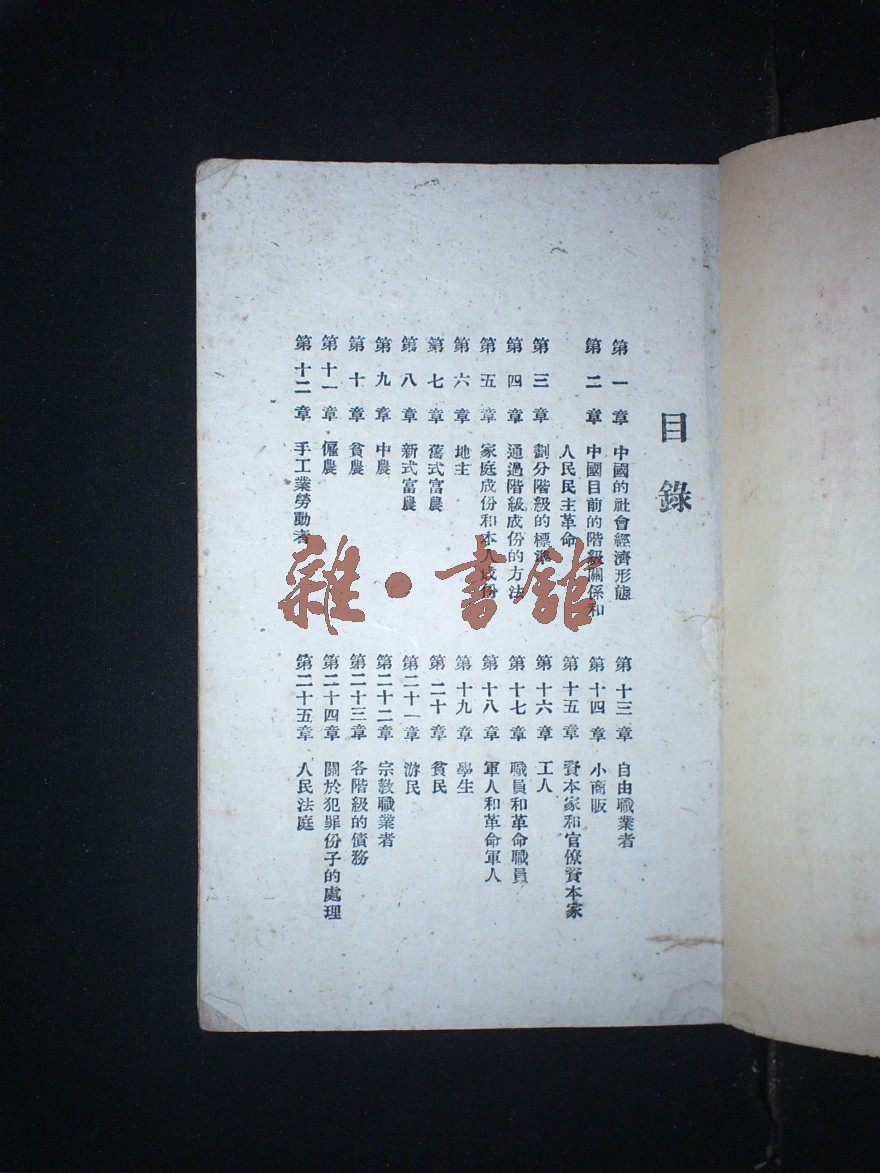 目錄
第一章 中國的社會經濟形態
第二章 中國目前的階級關係和
人民民主革命
第三章 劃分階級的標準
第四章 通過階級成份的方法
第五章 家庭成份和本人成份
第六章 地主
第七章 舊式富農
第八章 新式富農
第九章 中農
第十章 貧農
第十一章 僱農
第十二章 手工業勞動者
第十三章 自由職業者
第十四章 小商販
第十五章 資本家和官僚資本家
第十六章 工人
第十七章 職員和革命職員
第十八章 軍人和革命軍人
第十九章 學生
第二十章 貧民
第二十一章 游民
第二十二章 宗教職業者
第二十三章 各階級的債務
第二十四章 關於犯罪份子的處理
第二十五章 人民法庭
雜·書館